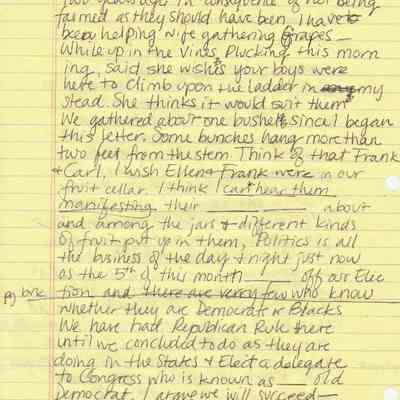 two years ago in consequence of not being
farmed as they should have been. I have
been helping Wife gathering Grapes—
While up in the Vines, Plucking this morn
ing, said she wishes your boys were
here to climb upon the ladder in any my
stead. She thinks it would suit them
We gathered about one bushel, since I began
this letter. Some bunches hang more than
two feet from the stem Think of that Frank
& Carl, I wish Ellen & Frank were in our
fruit cellar. I think I can hear them
manifesting their __________ about
and among the jars & different kinds
of fruit put up in them, Politics is all
the business of the day & night just now
as the 5th of this month ____ off our Elec
pg brk tion and there are very few who know
whether they are Democrats or Blacks
We have had Republican Rule here
until we concluded to do as they are
doing in the States & Elect a delegate
to Congress who is known as ___ old
Democrat, I we will succeed—